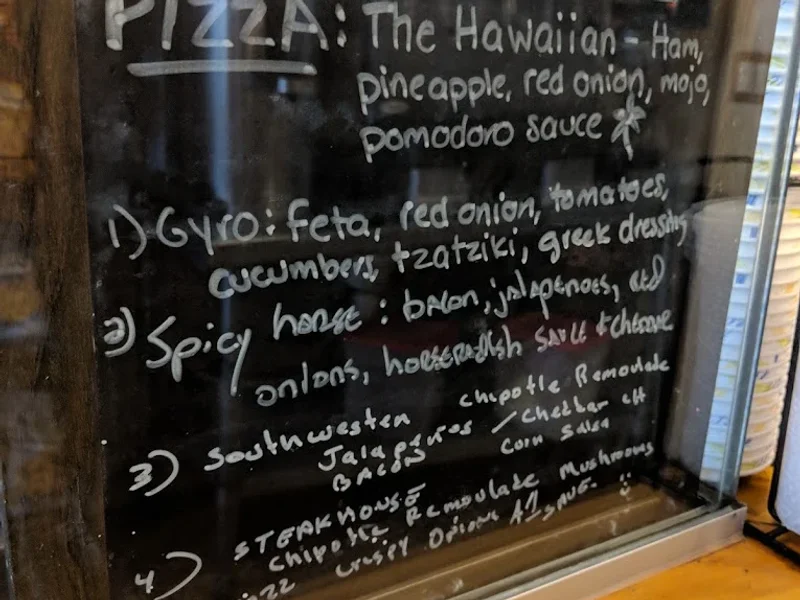 PIZZA: The Hawaiian - Ham,
pineapple, red onion, mojo,
pomodoro sauce
1) Gyro: feta, red onion, tomatoes,
cucumbers, tzatziki, greek dressing
2) Spicy horse: bacon, jalapenoes, red
onions, horseradish sauce + cheese
3) Southwestern Chipotle Remoulade
Jalapenos / Chedbar CH
BACON Corn Salsa
4) STEAKHOUSE
Chipotle Remoulade Mushrooms
Crispy Onions A1